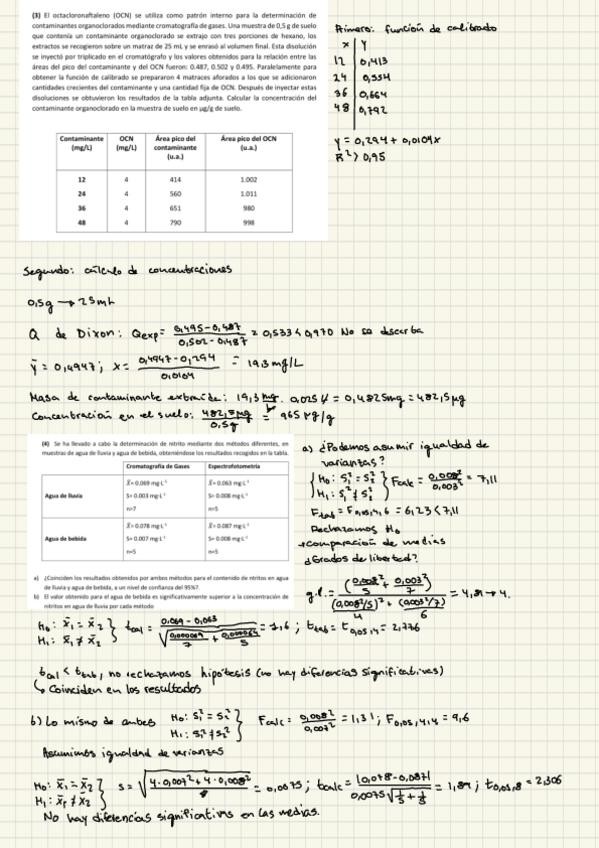 (3) El octacloronaftaleno (OCN) se utiliza como patrón interno para la determinación de
contaminantes organoclorados mediante cromatografía de gases. Una muestra de 0,5 g de suelo
que contenía un contaminante organoclorado se extrajo con tres porciones de hexano, los
extractos se recogieron sobre un matraz de 25 mL y se enrasó al volumen final. Esta disolución
se inyectó por triplicado en el cromatógrafo y los valores obtenidos para la relación entre las
áreas del pico del contaminante y del OCN fueron: 0.487, 0.502 y 0.495. Paralelamente para
obtener la función de calibrado se prepararon 4 matraces aforados a los que se adicionaron
cantidades crecientes del contaminante y una cantidad fija de OCN. Después de inyectar estas
disoluciones se obtuvieron los resultados de la tabla adjunta. Calcular la concentración del
contaminante organoclorado en la muestra de suelo en µg/g de suelo.
Contaminante (mg/L) OCN (mg/L) Área pico del contaminante (u.a.) Área pico del OCN (u.a.)
12 4 414 1.002
24 4 560 1.011
36 4 651 980
48 4 790 998
Primero: función de calibrado
x y
12 0,413
24 0,554
36 0,664
48 0,792
y = 0,294 + 0,0104x
R² > 0,95
Segundo: cálculo de concentraciones
0,5g → 25mL
Q de Dixon: Qexp = (0,495-0,487)/(0,502-0,487) = 0,533 < 0,970 No se descarta
ȳ = 0,4947; x = (0,4947-0,294)/0,0104 = 19,3 mg/L
Masa de contaminante extraída: 19,3 mg/L · 0,025 L = 0,4825mg = 482,5 µg
Concentración en el suelo: 482,5µg/0,5g = 965 µg/g
(4) Se ha llevado a cabo la determinación de nitrito mediante dos métodos diferentes, en
muestras de agua de lluvia y agua de bebida, obteniéndose los resultados recogidos en la tabla.
Cromatografía de Gases Espectrofotometría
Agua de lluvia
X̄= 0.069 mg·L⁻¹ X̄= 0.063 mg·L⁻¹
S= 0.003 mg·L⁻¹ S= 0.008 mg·L⁻¹
n=7 n=5
Agua de bebida
X̄= 0.078 mg·L⁻¹ X̄= 0.087 mg·L⁻¹
S= 0.007 mg·L⁻¹ S= 0.008 mg·L⁻¹
n=5 n=5
a) ¿Coinciden los resultados obtenidos por ambos métodos para el contenido de nitritos en agua
de lluvia y agua de bebida, a un nivel de confianza del 95%?
b) El valor obtenido para el agua de bebida es significativamente superior a la concentración de
nitritos en agua de lluvia por cada método
a) ¿Podemos asumir igualdad de
varianzas?
H₀: S₁² = S₂²
H₁: S₁² ≠ S₂²
Fcalc = 0,008²/0,003² = 7,11
Ftab = F0,05,4,6 = 6,23 < 7,11
Rechazamos H₀
→ comparación de medias
¿Grados de libertad?
g.l. = (0,008²/5 + 0,003²/7)/((0,008²/5)²/4 + (0,003²/7)²/6) = 4,81 → 4.
H₀: x̄₁ = x̄₂
H₁: x̄₁ ≠ x̄₂
tcal = (0,069-0,063)/√(0,000009/7 + 0,000064/5) = 1,6; ttab = t0,05,4 = 2,776
tcal < ttab, no rechazamos hipótesis (no hay diferencias significativas)
↳ Coinciden en los resultados
b) Lo mismo de antes
H₀: S₁² = S₂²
H₁: S₁² ≠ S₂²
Fcalc = 0,008²/0,007² = 1,31; F0,05,4,4 = 9,6
Asumimos igualdad de varianzas
H₀: x̄₁ = x̄₂
H₁: x̄₁ ≠ x̄₂
s = √((4·0,007² + 4·0,008²)/8) = 0,0075; tcalc = |0,078-0,087|/(0,0075√(1/5+1/5)) = 1,89; t0,05,8 = 2,306
No hay diferencias significativas en las medias.